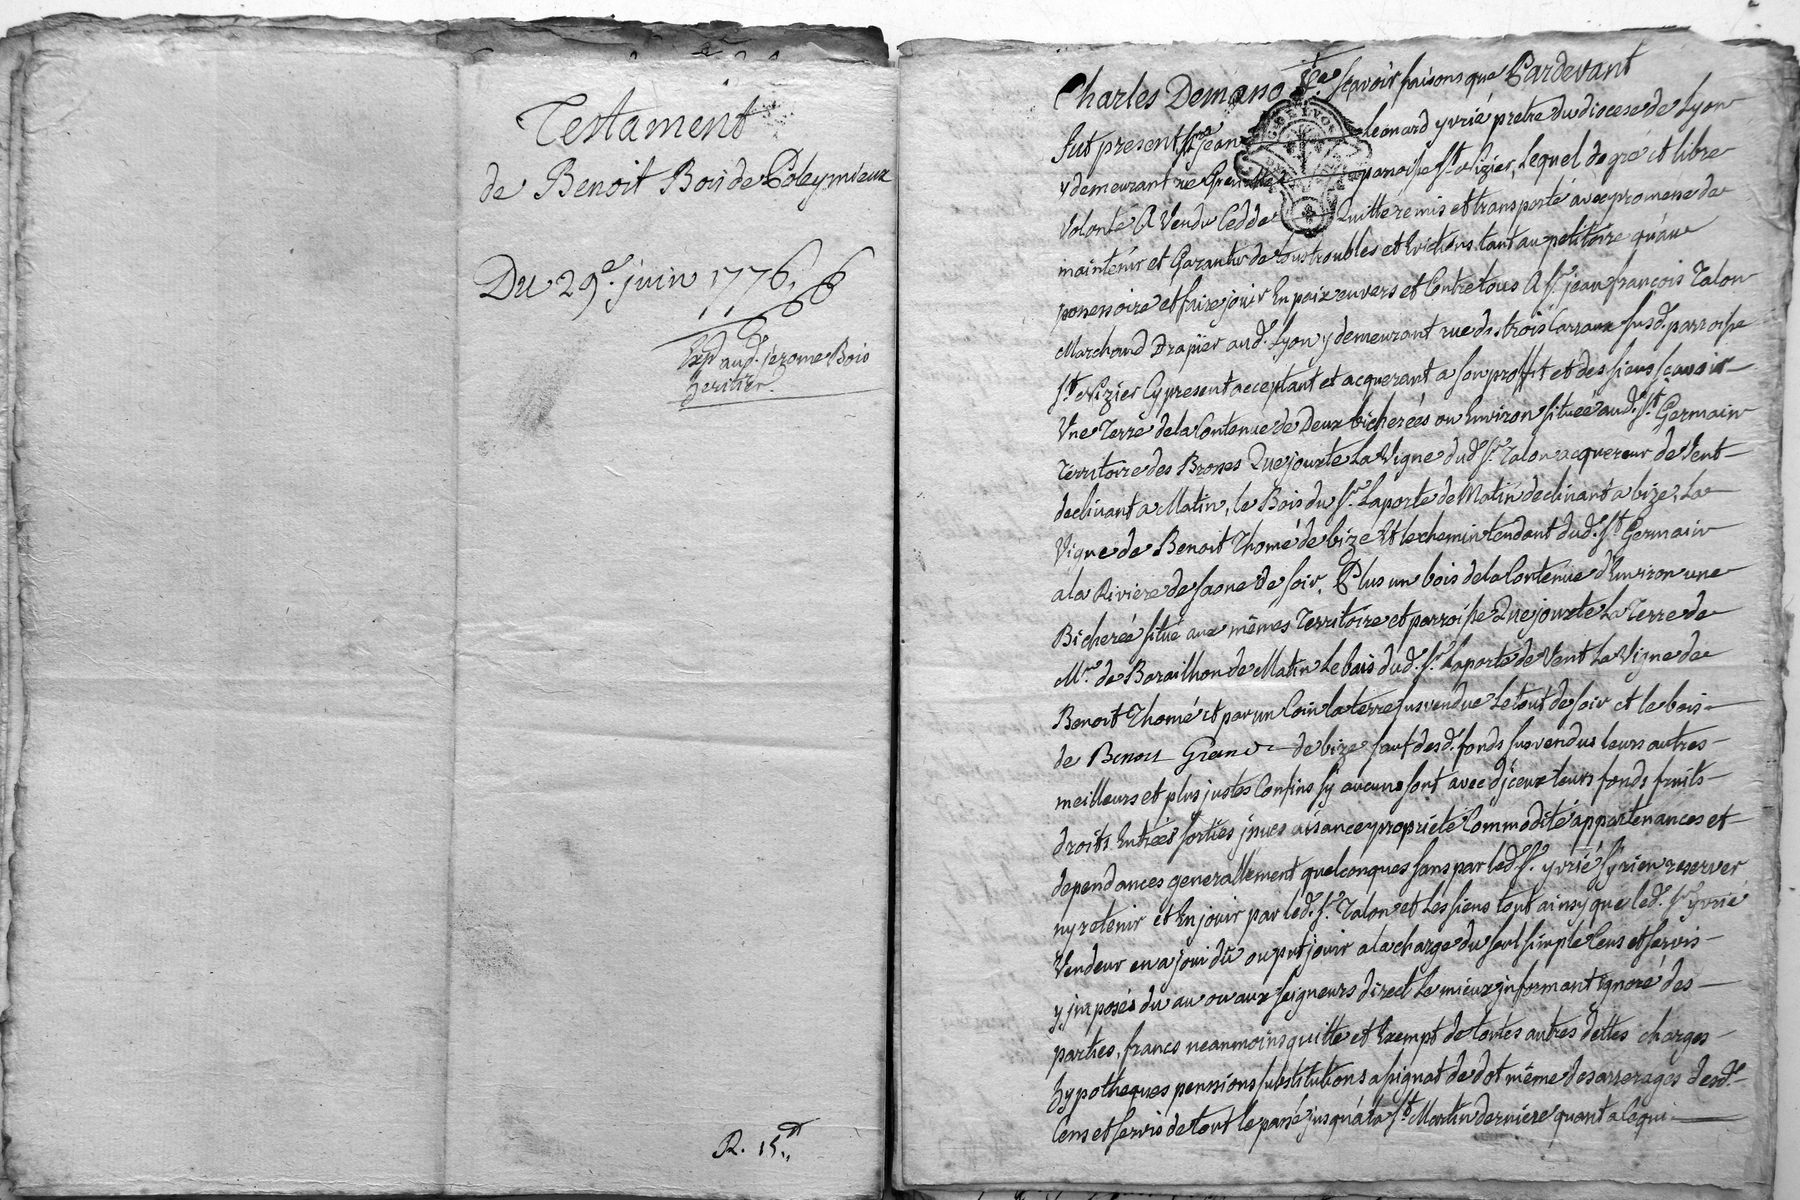 Testament
de Benoit Bois de Poleymieux
Du 29e. juin 1776.
Exp aud. jerome Bois
heritier.
R. 15
Charles Demano scavoir faisons que Pardevant
fut present Sr. jean leonard yvrié pretre du diocese de Lyon
y demeurant rue paroisse St. Nizier, Lequel de gré et libre
volonté A Vendu Cedde Quitté remis et transporté avec promesse de
maintenir et Garantir de tous troubles et Evictions tant au petitoire qu'au
possessoire et faire jouir En paix envers et Contre tous A Sr. jean françois Talon
Marchand Drapier aud. Lyon y demeurant rue des trois Carraux susd. parroisse
St. Nizier Cy present acceptant et acquerant a son proffit et des siens scavoir
Une Terre de la Contenue de Deux bicherées ou Environ situeé aud. St. Germain
Territoire des Brosses Que jouxte La Vigne dud. Sr. Talon acquereur de Vent
declinant a Matin, le Bois du Sr. Laporte de Matin declinant a bize, La
Vigne de Benoit Thomé de bize Et le chemin tendant dud. St. Germain
a la Riviere de Saone de soir. Plus un bois de la Contenue d'Environ une
Bicherée situé aux mêmes Territoire et parroisse Que jouxte La Terre de
Mr. de Barailhon de Matin Le bois dud. Sr. Laporte de Vent La Vigne de
Benoit Thomé et par un Coin la terre susvendue Le tout de soir et le bois
de Benoit de bize sauf desd. fonds susvendus leurs autres
meilleurs et plus justes Confins sy aucuns sont avec d'jceux leurs fonds fruits
droits Entreés sorties jssues aisance propriété Commodité appartenances et
dependances generallement quelconques sans par led. Sr. yvrié sy rien reserver
ny retenir et En jouir par led. Sr. Talon et Les siens tout ainsy que led. Sr. yvrié
Vendeur en a joui dû ou put jouir a la charge du seul simple Cens et servis
y jmposés du au ou aux seigneurs direct Le mieux jnformant ignoré des
parties, francs neanmoins quitte et Exempt de toutes autres dettes charges
hypotheques pensions substitutions assignat de dot même des arrerages desd.
Cens et servis de tout le passé jusqu'a la St. Martin derniere quant a Ce qui